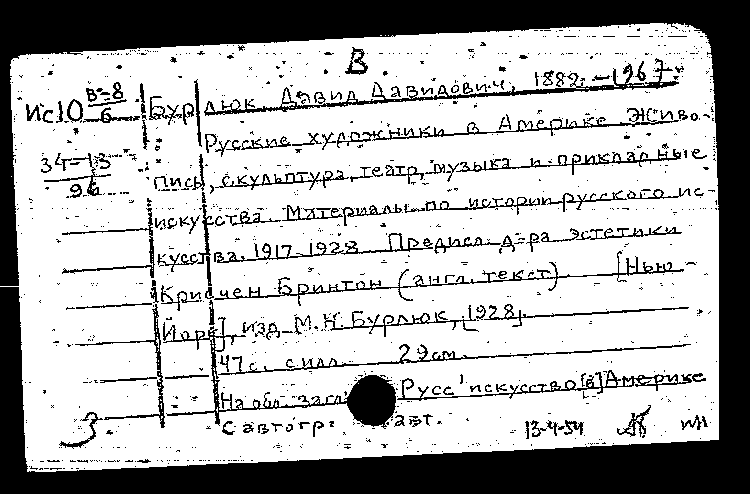 В
Ис10 В=8/6 Бурлюк, Давид Давидович, 1882-1967.
Русские художники в Америке. Живо-
34-13/96 пись, скульптура, театр, музыка и прикладные
искусства. Материалы по истории русского ис-
кусства. 1917-1928. Предисл. д-ра эстетики
Крисчен Бринтон (англ. текст). [Нью-
Йорк], изд. М.Н. Бурлюк, [1928].
47 с. с илл. 29 см.
На обл. загл. Русс' искусство [в] Америке
3. С автогр. авт. 13-4-54